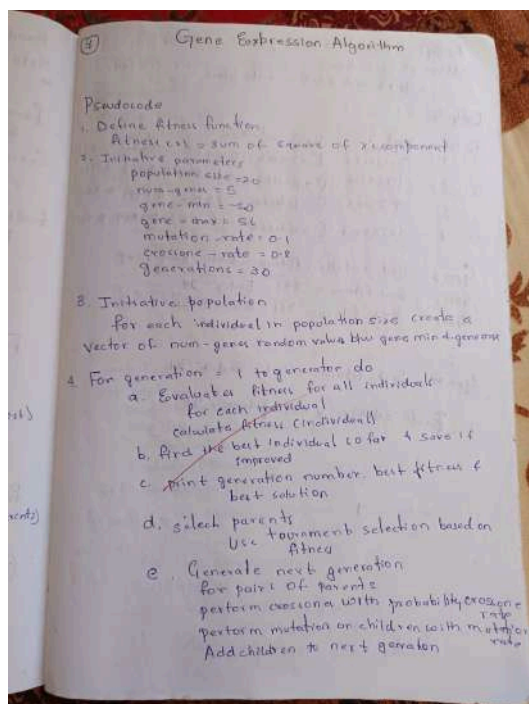 7
Gene Expression Algorithm
Pseudocode
1. Define fitness function
fitness (x) = sum of square of x component
2. Initiative parameters
population size = 20
num-genes = 5
gene-min = -50
gene-max = 50
mutation-rate = 0.1
crossone-rate = 0.8
generations = 30
3. Initiative population
for each individual in population size create a
vector of num-genes random value btw gene min & gene max
4. For generation = 1 to generator do
a. Evaluates fitness for all individuals
for each individual
calculate fitness (individual)
b. find the best individual so far & save if
improved
c. print generation number, best fitness &
best solution
d. select parents
Use tournment selection based on
fitnes
e. Generate next generation
for pairs of parents
perform crossoner with probability crossone
rate
perform mutation on children with mutation
rate
Add children to next genraton